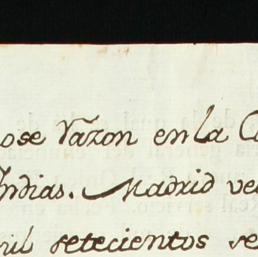 ose Razon en la C
Indias. Madrid ve
mil setecientos se